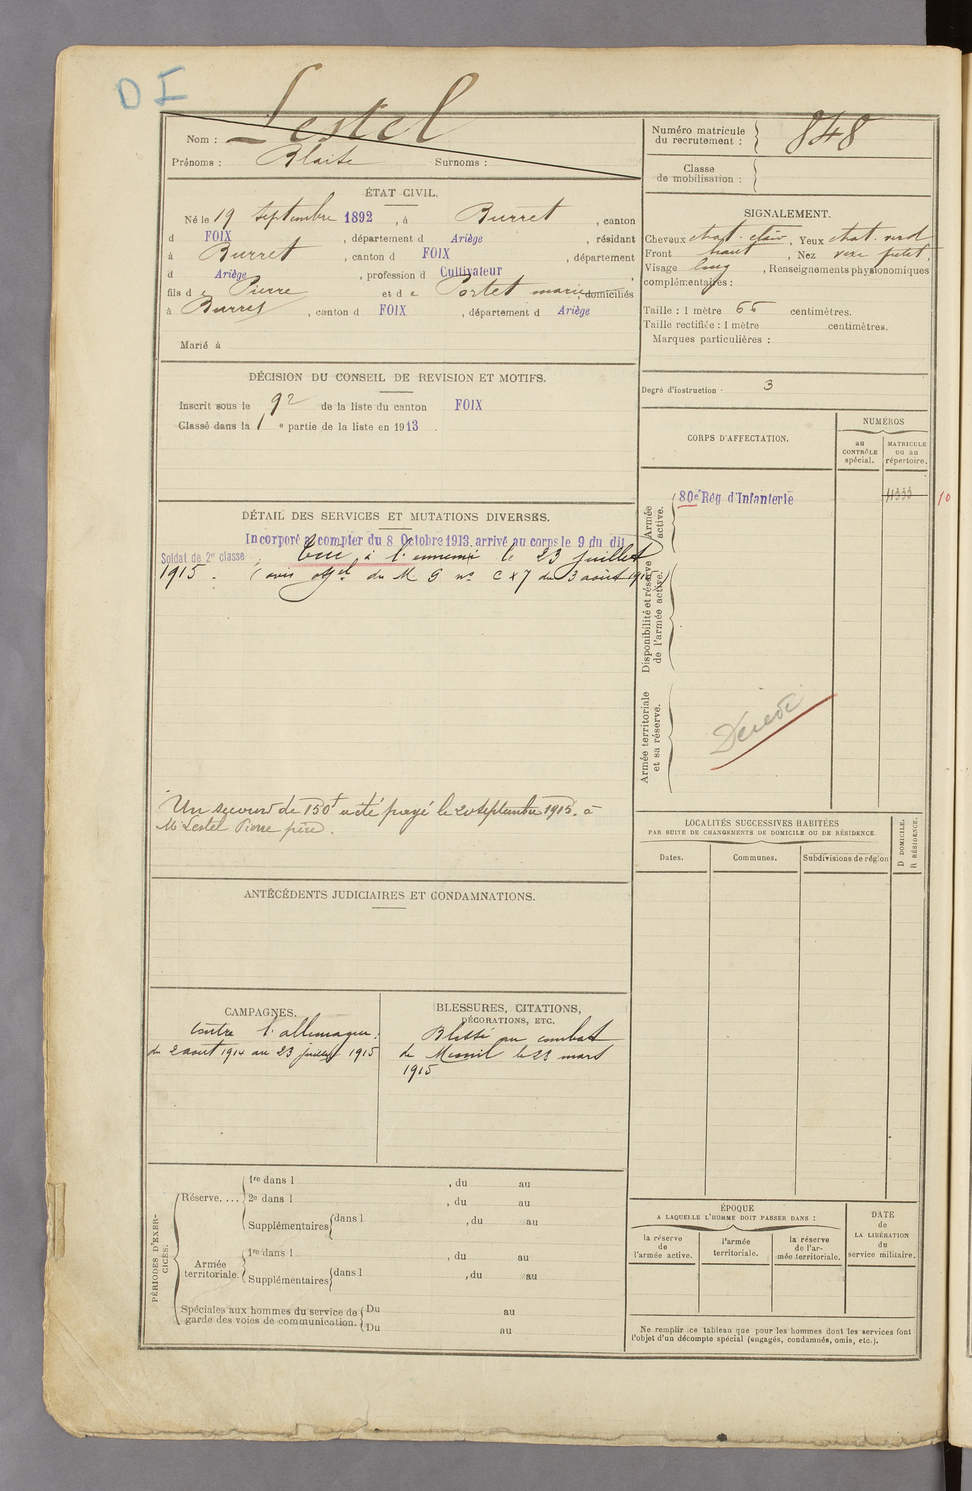 DI
Nom : Lestel
Prénoms : Blaise Surnoms :
Numéro matricule du recrutement : 848
Classe de mobilisation :
ÉTAT CIVIL.
Né le 19 Septembre 1892, à Burret, canton
d FOIX, département d Ariège, résidant
à Burret, canton d FOIX, département
d Ariège, profession d Cultivateur,
fils de Pierre et de Portet marie, domiciliés
à Burret, canton d FOIX, département d Ariège
Marié à
SIGNALEMENT.
Cheveux chat. clair, Yeux chat. verd
Front haut, Nez petit.
Visage long, Renseignements physionomiques
complémentaires :
Taille : 1 mètre 65 centimètres.
Taille rectifiée : 1 mètre centimètres.
Marques particulières :
Degré d'instruction 3
DÉCISION DU CONSEIL DE REVISION ET MOTIFS.
Inscrit sous le 92 de la liste du canton FOIX
Classé dans la 1e partie de la liste en 1913.
CORPS D'AFFECTATION.
NUMÉROS
au CONTRÔLE spécial.
MATRICULE ou au répertoire.
Armée active.
80e Rég d'Infanterie
10
Disponibilité et réserve de l'armée active.
Armée territoriale et sa réserve.
Décédé
DÉTAIL DES SERVICES ET MUTATIONS DIVERSES.
Incorporé à compter du 8 Octobre 1913, arrivé au corps le 9 du dit
Soldat de 2e classe ; Tué à l'ennemi le 23 juillet
1915. (avis off.el du M G no C x 7 du 3 août 1915)
Un secours de 150f a été payé le 20 septembre 1915. à
Mr Lestel Pierre père.
LOCALITÉS SUCCESSIVES HABITÉES
PAR SUITE DE CHANGEMENTS DE DOMICILE OU DE RÉSIDENCE.
Dates. Communes. Subdivisions de région
D DOMICILE.
R RÉSIDENCE.
ANTÉCÉDENTS JUDICIAIRES ET CONDAMNATIONS.
CAMPAGNES.
contre l'allemagne.
du 2 aout 1914 au 23 juillet 1915
BLESSURES, CITATIONS,
DÉCORATIONS, ETC.
Blessé au combat
de Mesnil le 23 mars
1915
PÉRIODES D'EXERCICES.
Réserve....
1re dans l , du au
2e dans l , du au
Supplémentaires dans l , du au
Armée territoriale.
1re dans l , du au
Supplémentaires dans l , du au
Spéciales aux hommes du service de garde des voies de communication.
Du au
Du au
ÉPOQUE
A LAQUELLE L'HOMME DOIT PASSER DANS :
la réserve de l'armée active.
l'armée territoriale.
la réserve de l'armée territoriale.
DATE de LA LIBÉRATION du service militaire.
Ne remplir ce tableau que pour les hommes dont les services font
l'objet d'un décompte spécial (engagés, condamnés, omis, etc.).